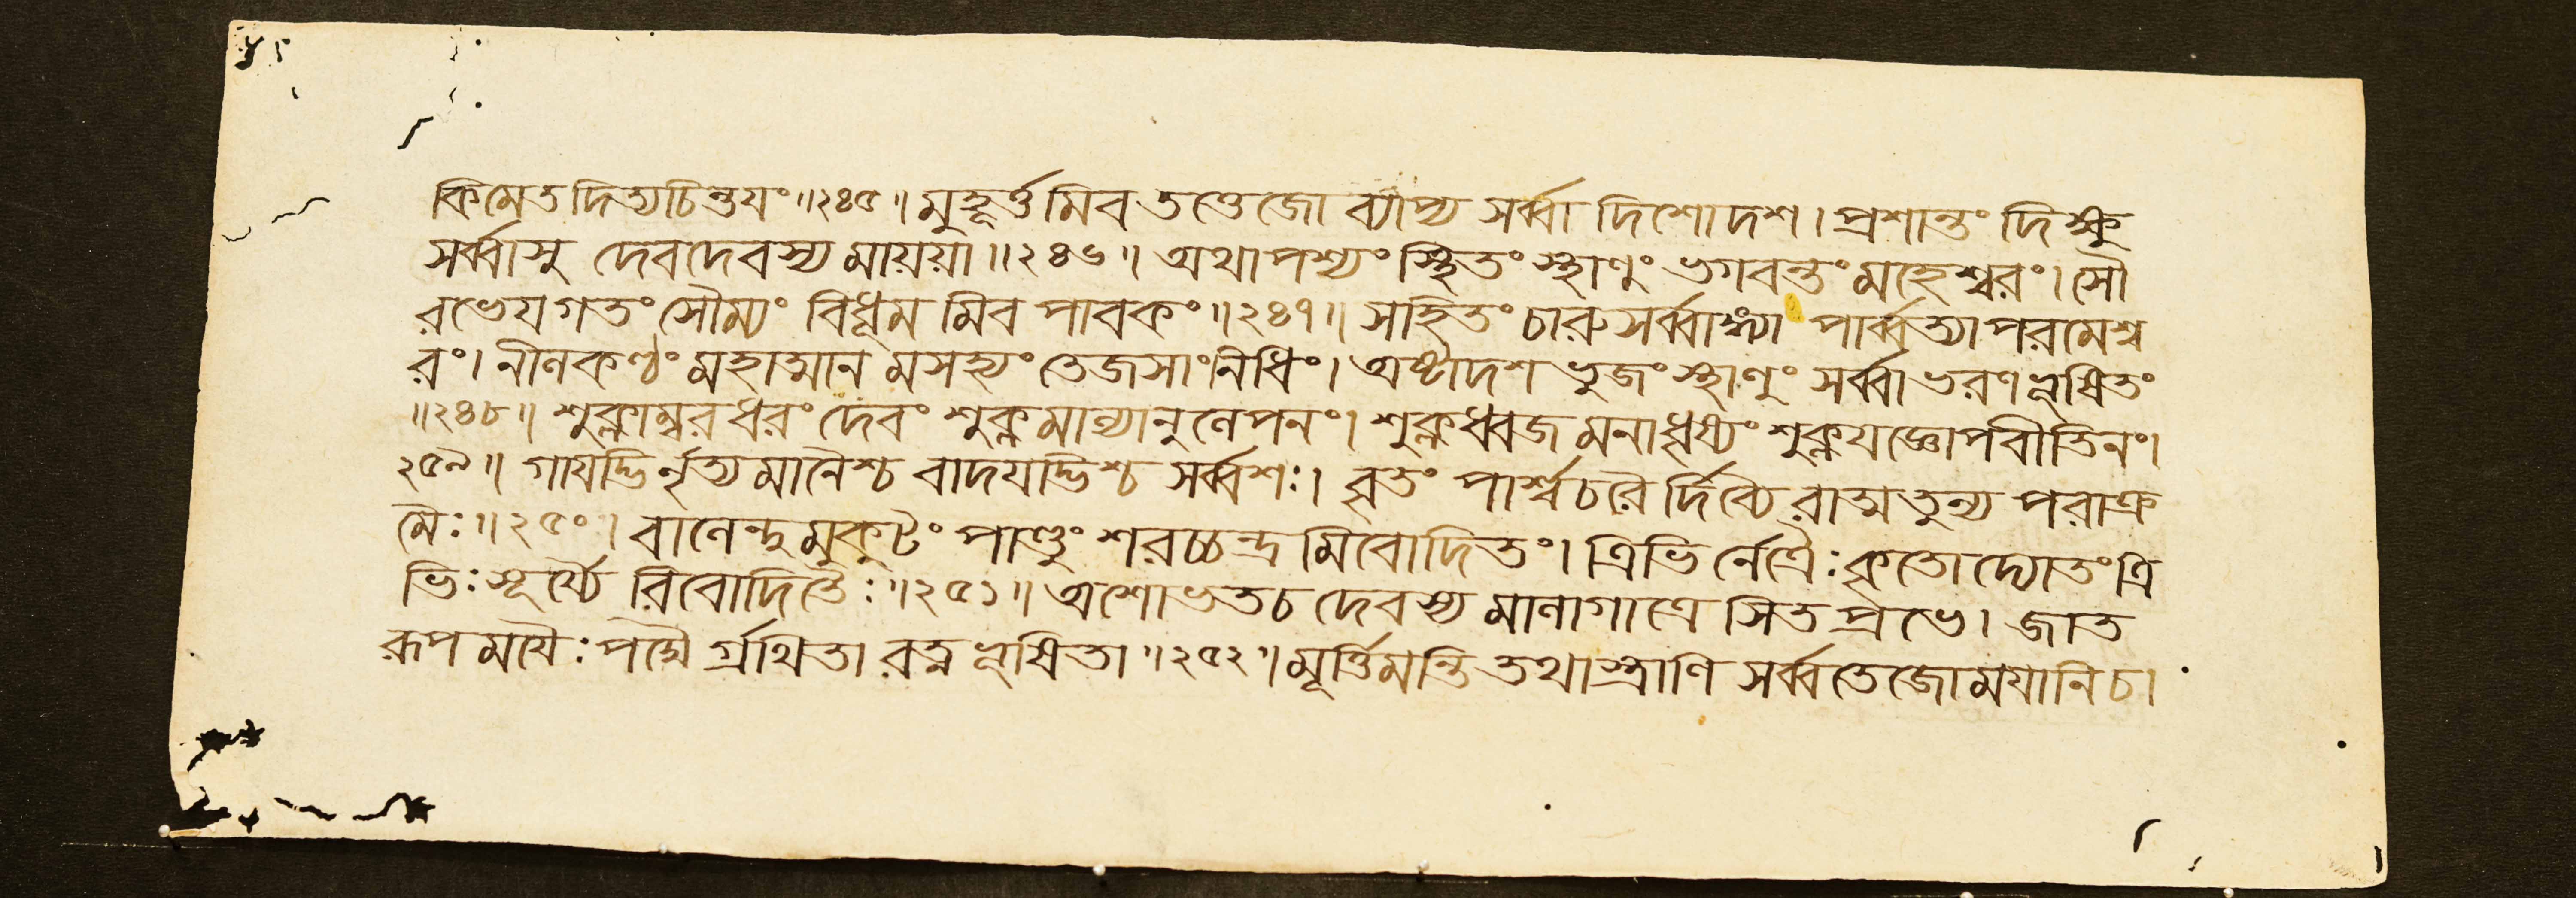 কিমেতদিত্যচিন্তযং॥২৪৫॥মুহূর্ত্তমিব তত্তেজো ব্যাপ্য সর্ব্বা দিশোদশ।প্রশান্তং দিক্ষু
সর্ব্বাসু দেবদেবস্য মায়য়া॥২৪৬॥ অথাপশ্যং স্থিতং স্থাণুং ভগবন্তং মহেশ্বরং। সৌ
রভেযগতং সৌম্যং বিধূম মিব পাবকং॥২৪৭॥ সহিতং চারুসর্ব্বাঙ্গ্যা পার্ব্বত্যা পরমেশ্ব
রং। নীলকণ্ঠং মহাত্মান মসহ্যং তেজসাংনিধিং। অষ্টাদশ ভুজং স্থাণুং সর্ব্বাভরণ ভূষিতং
॥২৪৮॥ শুক্লাম্বর ধরং দেবং শুক্লমাল্যানুলেপনং। শুক্লধ্বজ মনাধৃষ্যং শুক্লযজ্ঞোপবীতিনং।
২৫৯॥ গাযদ্ভির্নৃত্য মানৈশ্চ বাদযদ্ভিশ্চ সর্ব্বশঃ। বৃতং পার্শ্বচরৈ র্দিব্যৈ রাত্মতুল্য পরাক্র
মৈঃ॥২৫০। বালেন্দুমুকুটং পাণ্ডুং শরচ্চন্দ্র মিবোদিতং। ত্রিভি র্নেত্রৈঃ কৃতোদ্যোতং ত্রি
ভিঃ সূর্য্যৈ রিবোদিতৈঃ॥২৫১॥ অশোভতচ দেবস্য মালাগাত্রে সিত প্রভে। জাত
রূপ মযৈঃ পদ্মৈ র্গ্রথিতা রত্ন ভূষিতা॥২৫২॥মূর্ত্তিমন্তি তথাস্ত্রাণি সর্ব্বতেজোমযানি চ।